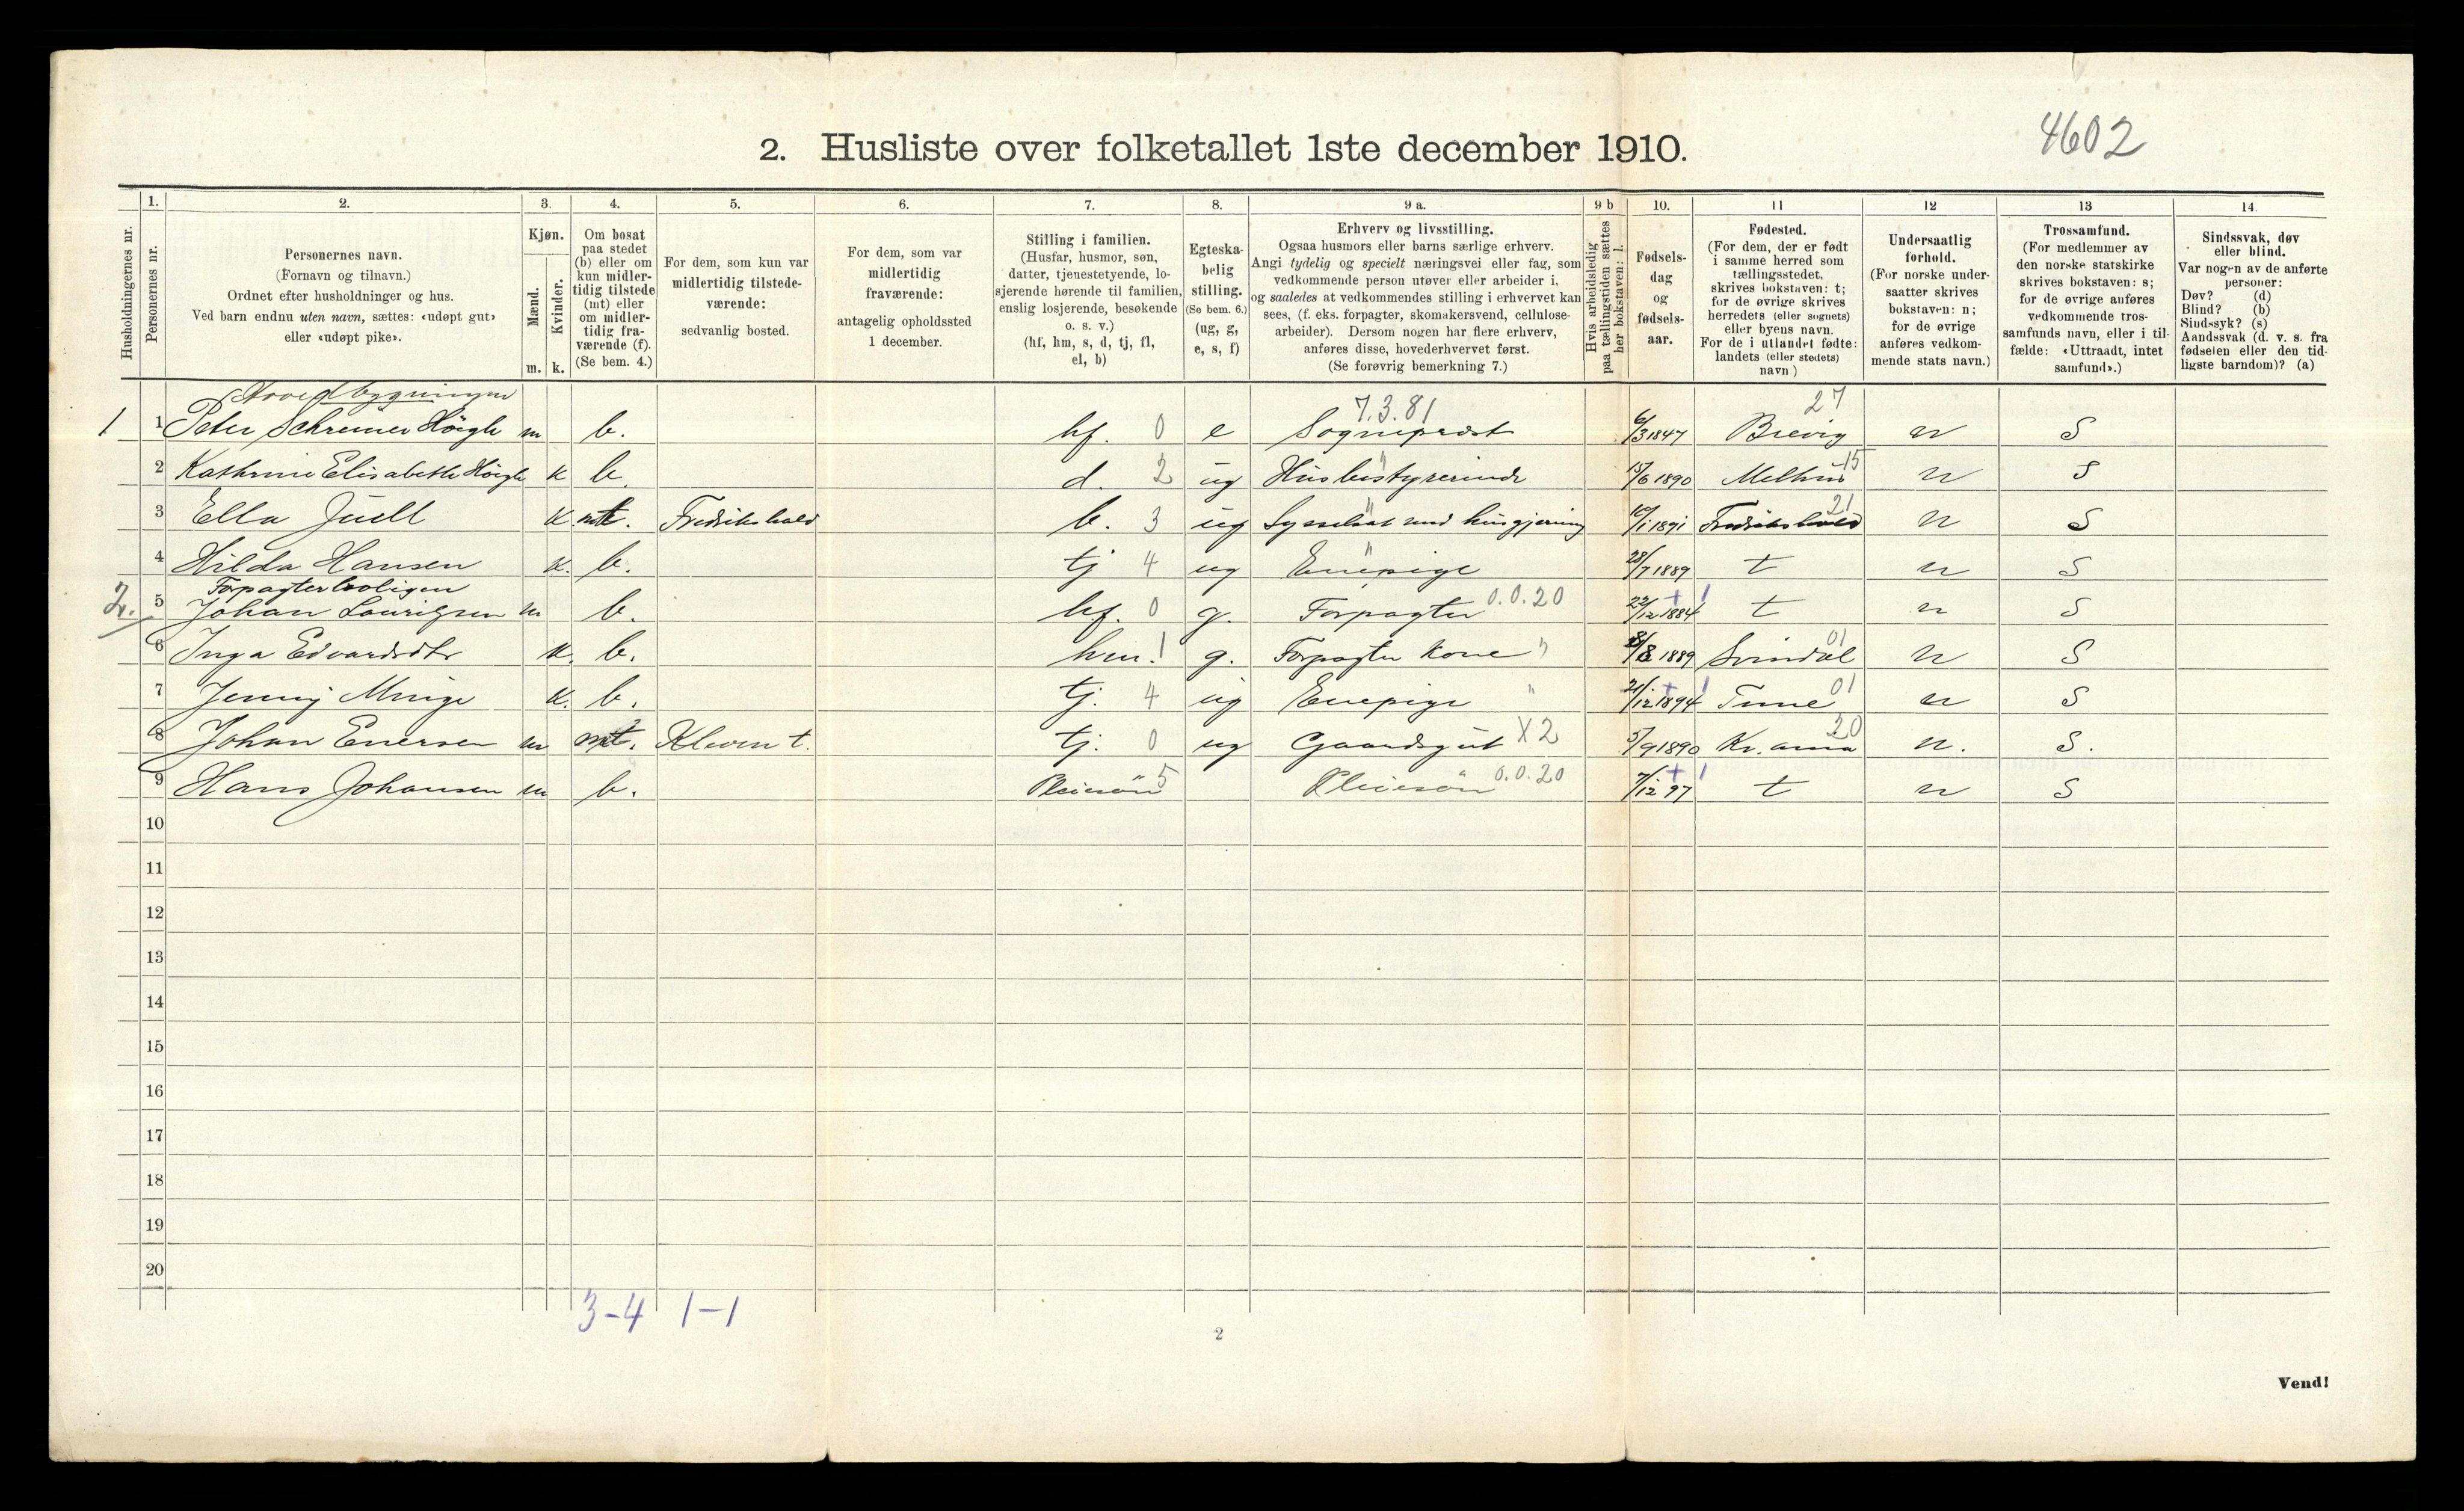 4602
2. Husliste over folketallet 1ste december 1910.
Husholdningernes nr.
1.
Personernes nr.
2.
Personernes navn.
(Fornavn og tilnavn.)
Ordnet efter husholdninger og hus.
Ved barn endnu uten navn, sættes: «udøpt gut»
eller «udøpt pike».
3.
Kjøn.
Mænd.
Kvinder.
m. k.
4.
Om bosat
paa stedet
(b) eller om
kun midler-
tidig tilstede
(mt) eller
om midler-
tidig fra-
værende (f).
(Se bem. 4.)
5.
For dem, som kun var
midlertidig tilstede-
værende:
sedvanlig bosted.
6.
For dem, som var
midlertidig
fraværende:
antagelig opholdssted
1 december.
7.
Stilling i familien.
(Husfar, husmor, søn,
datter, tjenestetyende, lo-
sjerende hørende til familien,
enslig losjerende, besøkende
o. s. v.)
(hf, hm, s, d, tj, fl,
el, b)
8.
Egteska-
belig
stilling.
(Se bem. 6.)
(ug, g,
e, s, f)
9 a.
Erhverv og livsstilling.
Ogsaa husmors eller barns særlige erhverv.
Angi tydelig og specielt næringsvei eller fag, som
vedkommende person utøver eller arbeider i,
og saaledes at vedkommendes stilling i erhvervet kan
sees, (f. eks. forpagter, skomakersvend, cellulose-
arbeider). Dersom nogen har flere erhverv,
anføres disse, hovederhvervet først.
(Se forøvrig bemerkning 7.)
9 b
Hvis arbeidsledig
paa tællingstiden sættes
her bokstaven: l.
10.
Fødsels-
dag
og
fødsels-
aar.
11
Fødested.
(For dem, der er født
i samme herred som
tællingsstedet,
skrives bokstaven: t;
for de øvrige skrives
herredets (eller sognets)
eller byens navn.
For de i utlandet fødte:
landets (eller stedets)
navn.)
12
Undersaatlig
forhold.
(For norske under-
saatter skrives
bokstaven: n;
for de øvrige
anføres vedkom-
mende stats navn.)
13
Trossamfund.
(For medlemmer av
den norske statskirke
skrives bokstaven: s;
for de øvrige anføres
vedkommende tros-
samfunds navn, eller i til-
fælde: «Uttraadt, intet
samfund».)
14.
Sindssvak, døv
eller blind.
Var nogen av de anførte
personer:
Døv? (d)
Blind? (b)
Sindssyk? (s)
Aandssvak (d. v. s. fra
fødselen eller den tid-
ligste barndom)? (a)
Hovedbygningen 7.3.81 27
1 1 Peter Schreiner Höigh m b. hf. 0 e Sogneprest 6/3 1847 Brevig n S
2 Kathrine Elisabeth Höigh k b. d. 2 ug Husbestyrerinde " 15/6 1890 Melhus 15 n S
3 Ella Juell k mt. Fredrikshald b. 3 ug Sysselsat med husgjerning " 10/1 1891 Fredrikshald 21 n S
4 Hilda Hansen k. b. tj 4 ug Enepige " 28/7 1889 t n S
Forpagterboligen
2. 5 Johan Lauritsen m b. hf. 0 g. Forpagter 0.0.20 22/12 1884 + 1 t n S
6 Inga Edvardsdtr k. b. hm. 1 g. Forpagter kone " 8/8 1889 Svindal 01 n S
7 Jenny Minge k. b. tj. 4 ug Enepige " 21/12 1894 + 1 Tune 01 n S
8 Johan Enersen m mt. Kleven t. tj. 0 ug Gaardsgut X2 5/9 1890 Kr. ania 20 n. S.
9 Hans Johansen m b. Pleiesön 5 Pleiesön " 0.0.20 7/12 97 + 1 t n S
10
11
12
13
14
15
16
17
18
19
20
3-4 1-1
2
Vend!